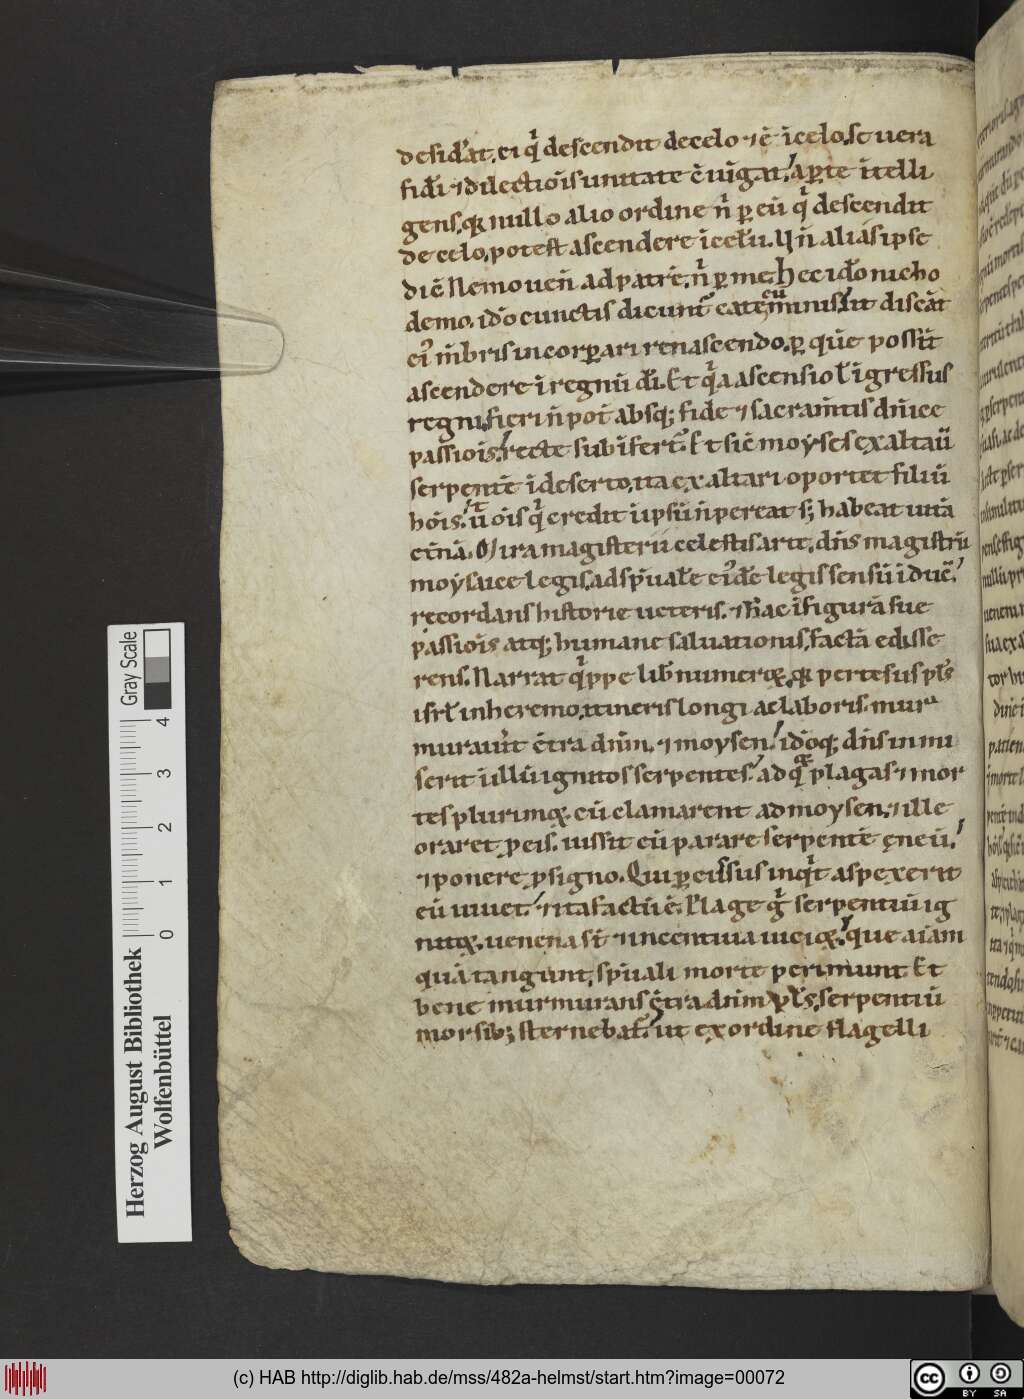 desid̾at. ei q̍ descendit de celo ⁊ ē ī celo. se uera
fidei ⁊ dilectiōis unitate cōiūgat. aperte ītelli
gens, qꝛ nullo alio ordine n̄ ꝑ eū q̍ descendit
de celo, potest ascendere ī celū. Un̄ alias ipse
dic̄ Nemo uen̄ ad patrē, n̄ ꝑ me. hec id̄o nicho
demo. id̄o cunctis dicunt̄ eatecuminis. ut discāt
ei̾ m̄bris incorꝑari renascendo. ꝑ quē possīt
ascendere ī regnū dī. Et q̍a ascensio ł īgressus
regni, fieri n̄ pot̄ absq; fide ⁊ sacram̄tis dn̄ice
passiōis. recte subīfert̄. Et sic̄ moẏses exaltau̅
serpentē ī deserto, ita exaltari oportet filiū
hōis. ut ōis q̍ credit ī ipsū n̄ pereat s; habeat uitā
et̄nā. Mira magisterii celestis arte. dn̄s magistrū
moẏsaice legis, ad sp̄uale ei̾de legis sensū īduc̄.
recordans historie ueteris. ⁊ hāc ī figurā sue
passiōis atq; humane saluationis, factā edisse
rens. Narrat q̍ppe lib̄ numeroꝝ, qꝛ pertesus pl̄s
isrł in heremo, itineris longi ac laboris. mur
murauit c̄tra dn̄m. ⁊ moysen. id̄oq; dn̄s inmi
serit ī illū ignitos serpentes. ad quoꝝ plagas ⁊ mor
tes plurimoꝝ. cū clamarent ad moysen, ⁊ ille
oraret ꝓ eis. iussit eū parare serpentē ęneū.
⁊ ponere ꝓ signo. Qui ꝑcussus inq̍t aspexerit
eū uiuet. ⁊ ita factū ē. Plage g̍ serpentiū ig
nitoꝝ. uenena st̄ ⁊ incentiua uicioꝝ. que aīam
quā tangunt, sp̄uali morte perimunt. Et
bene murmurans c̄tra dn̄m pl̄s, serpentiū
morsib; sternebat̄. ut ex ordine flagelli
Gray Scale
4 3 2 1 0
Herzog August Bibliothek
Wolfenbüttel
(c) HAB http://diglib.hab.de/mss/482a-helmst/start.htm?image=00072
cc BY SA